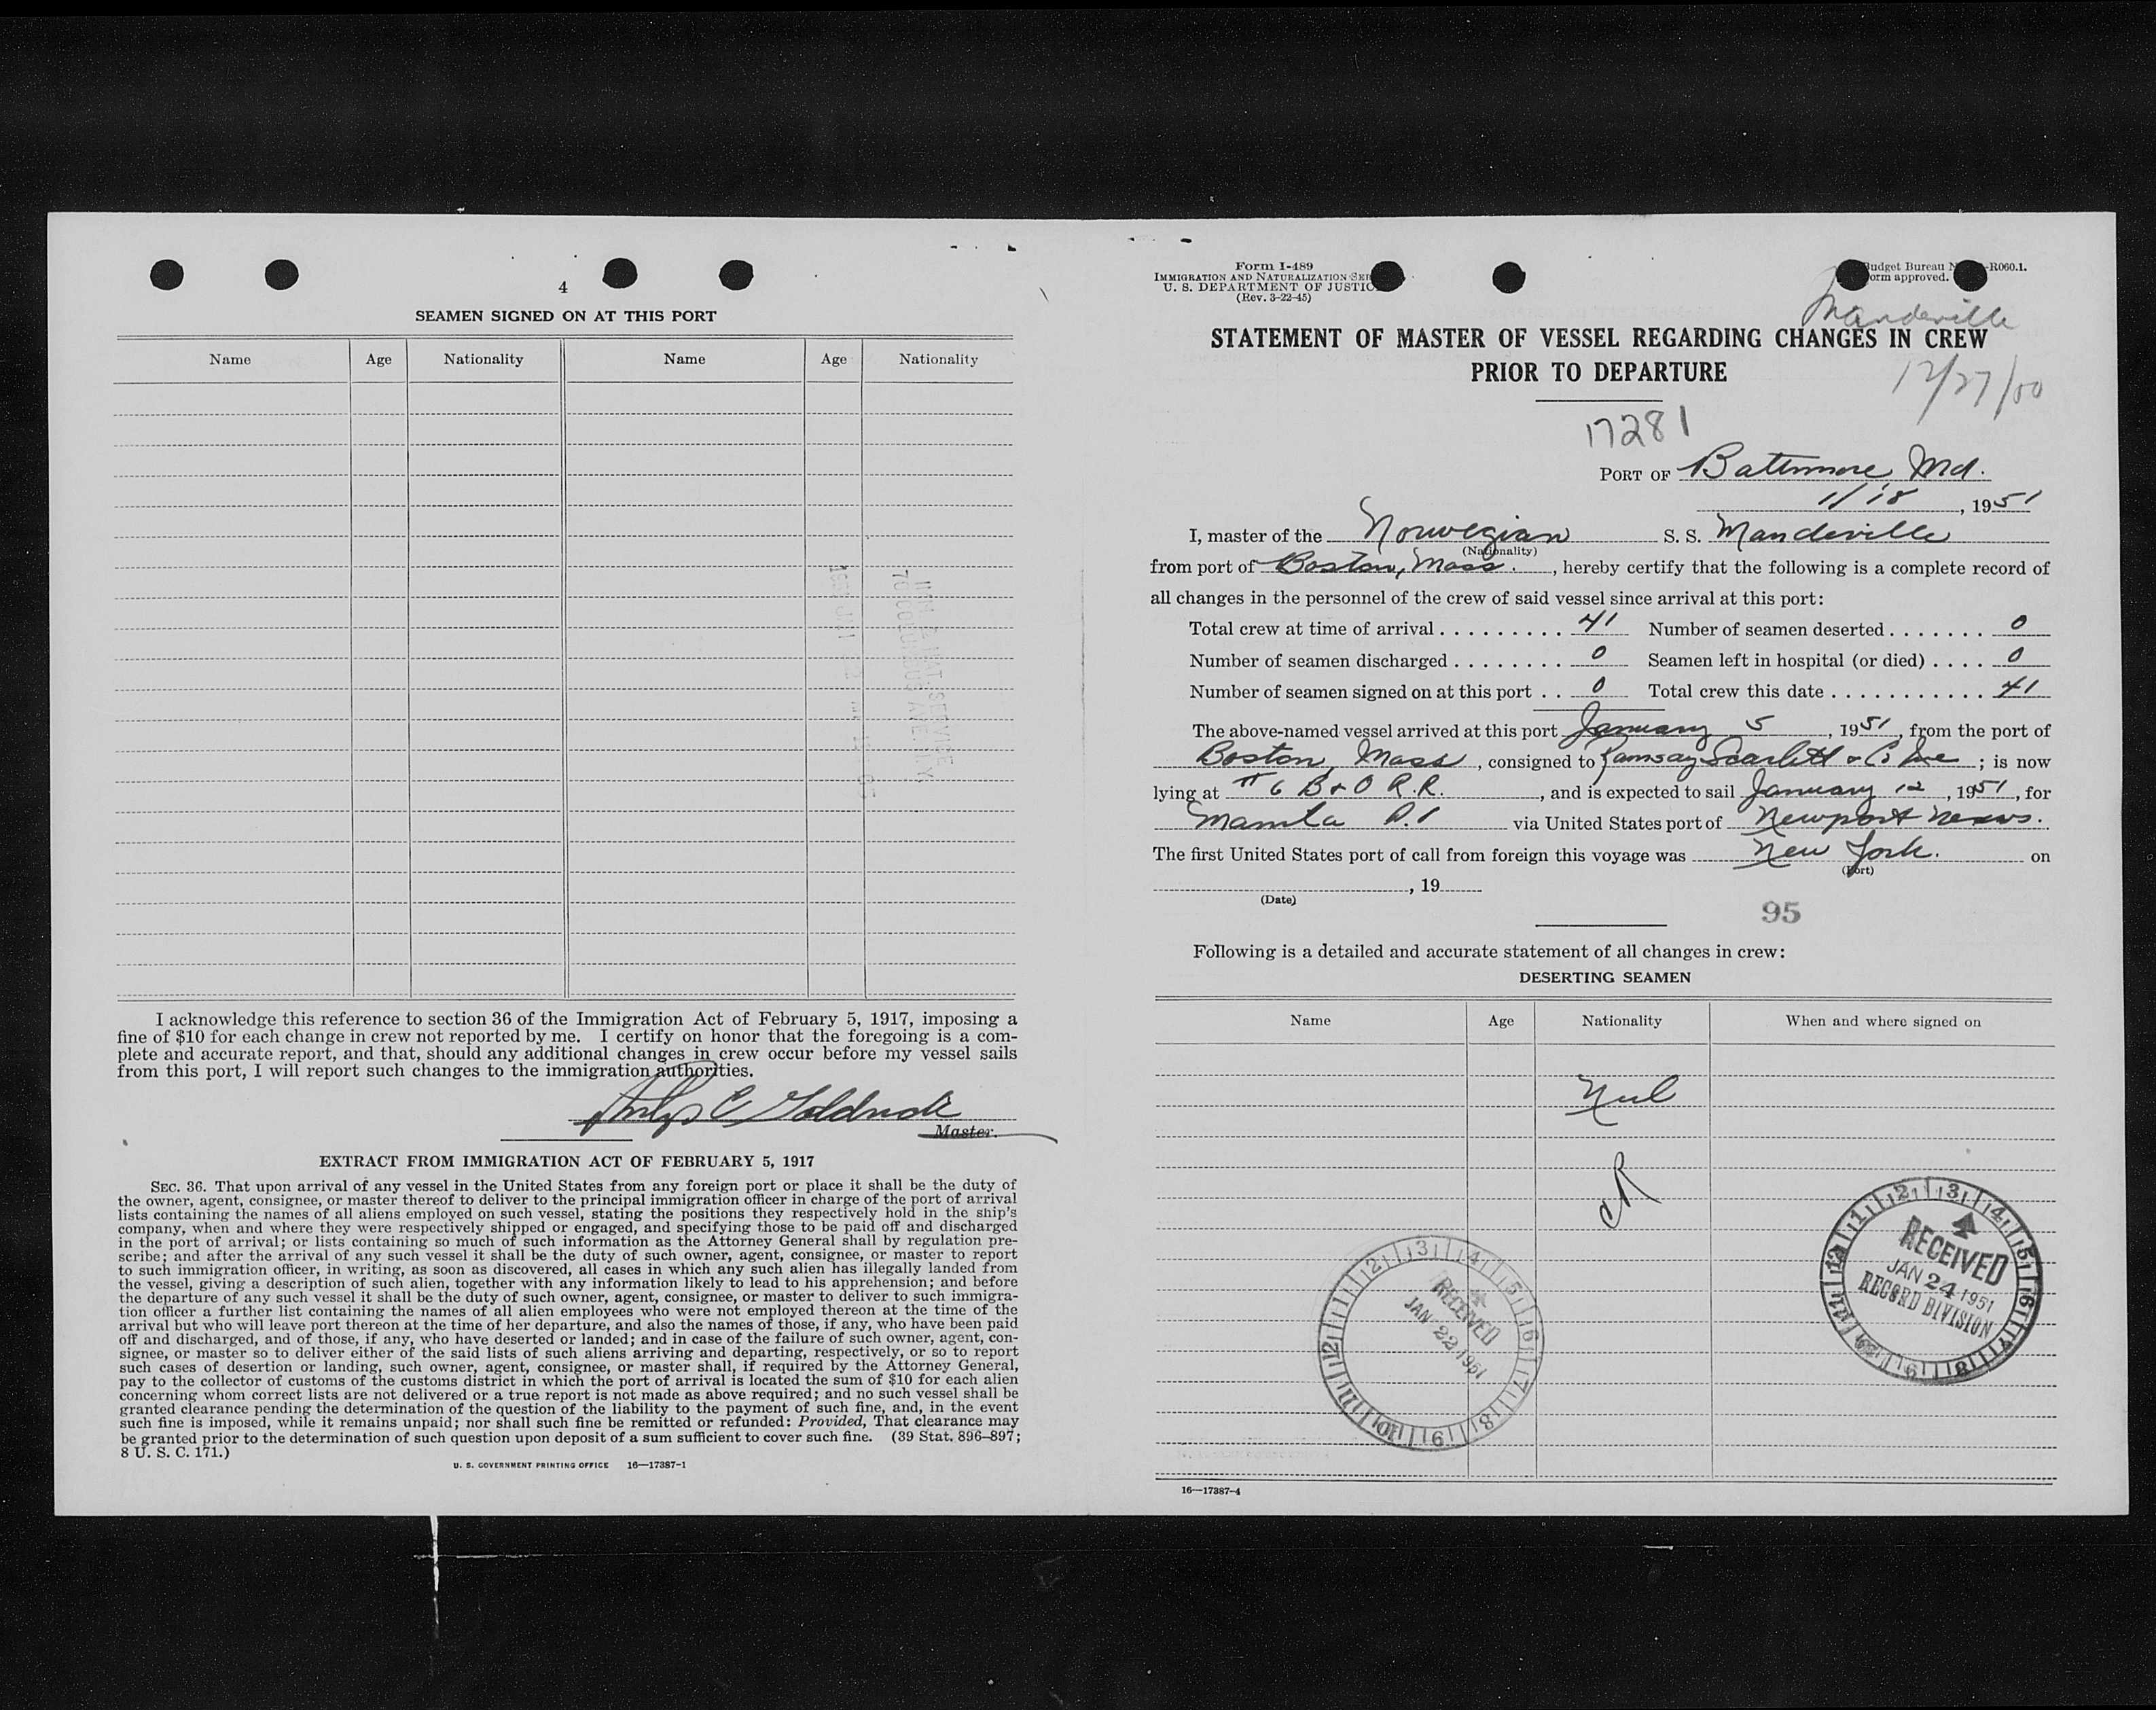 4
SEAMEN SIGNED ON AT THIS PORT
Name Age Nationality Name Age Nationality
I acknowledge this reference to section 36 of the Immigration Act of February 5, 1917, imposing a
fine of $10 for each change in crew not reported by me. I certify on honor that the foregoing is a com-
plete and accurate report, and that, should any additional changes in crew occur before my vessel sails
from this port, I will report such changes to the immigration authorities.
Master.
EXTRACT FROM IMMIGRATION ACT OF FEBRUARY 5, 1917
SEC. 36. That upon arrival of any vessel in the United States from any foreign port or place it shall be the duty of
the owner, agent, consignee, or master thereof to deliver to the principal immigration officer in charge of the port of arrival
lists containing the names of all aliens employed on such vessel, stating the positions they respectively hold in the ship's
company, when and where they were respectively shipped or engaged, and specifying those to be paid off and discharged
in the port of arrival; or lists containing so much of such information as the Attorney General shall by regulation pre-
scribe; and after the arrival of any such vessel it shall be the duty of such owner, agent, consignee, or master to report
to such immigration officer, in writing, as soon as discovered, all cases in which any such alien has illegally landed from
the vessel, giving a description of such alien, together with any information likely to lead to his apprehension; and before
the departure of any such vessel it shall be the duty of such owner, agent, consignee, or master to deliver to such immigra-
tion officer a further list containing the names of all alien employees who were not employed thereon at the time of the
arrival but who will leave port thereon at the time of her departure, and also the names of those, if any, who have been paid
off and discharged, and of those, if any, who have deserted or landed; and in case of the failure of such owner, agent, con-
signee, or master so to deliver either of the said lists of such aliens arriving and departing, respectively, or so to report
such cases of desertion or landing, such owner, agent, consignee, or master shall, if required by the Attorney General,
pay to the collector of customs of the customs district in which the port of arrival is located the sum of $10 for each alien
concerning whom correct lists are not delivered or a true report is not made as above required; and no such vessel shall be
granted clearance pending the determination of the question of the liability to the payment of such fine, and, in the event
such fine is imposed, while it remains unpaid; nor shall such fine be remitted or refunded: Provided, That clearance may
be granted prior to the determination of such question upon deposit of a sum sufficient to cover such fine. (39 Stat. 896–897;
8 U. S. C. 171.)
U. S. GOVERNMENT PRINTING OFFICE 16—17387-1
Form I-489
IMMIGRATION AND NATURALIZATION SER
U. S. DEPARTMENT OF JUSTIC
(Rev. 3-22-45)
Budget Bureau N -R060.1.
orm approved.
Mandeville
STATEMENT OF MASTER OF VESSEL REGARDING CHANGES IN CREW
PRIOR TO DEPARTURE
12/27/50
17281
PORT OF Baltimore Md.
1/18, 1951
I, master of the Norwegian S. S. Mandeville
(Nationality)
from port of Boston, Mass., hereby certify that the following is a complete record of
all changes in the personnel of the crew of said vessel since arrival at this port:
Total crew at time of arrival 41 Number of seamen deserted 0
Number of seamen discharged 0 Seamen left in hospital (or died) 0
Number of seamen signed on at this port 0 Total crew this date 41
The above-named vessel arrived at this port January 5, 1951, from the port of
Boston, Mass, consigned to Ramsay Scarlett & Co Inc; is now
lying at #6 B & O R.R., and is expected to sail January 12, 1951, for
Manila P.I via United States port of Newport News.
The first United States port of call from foreign this voyage was New York. on
(Port)
, 19
(Date)
95
Following is a detailed and accurate statement of all changes in crew:
DESERTING SEAMEN
Name Age Nationality When and where signed on
Nul
RECEIVED
JAN 22 1951
RECEIVED
JAN 24 1951
RECORD DIVISION
16—17387-4